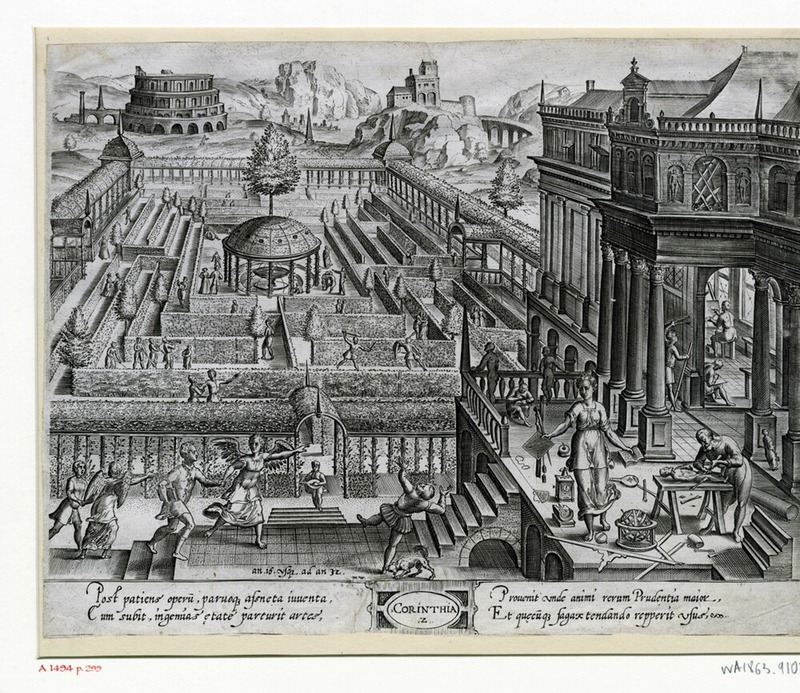 an 16. usq. ad an 32.
Post patiens operũ, paruoq; assueta iuuenta,
Cum subit, ingenuas etate parturit artes,
CORINTHIA
.2.
Prouenit vnde animi rerum Prudentia maior,
Et quecũq; sagax tendando repperit vsus,
A 1494 p. 299
WA1863.910